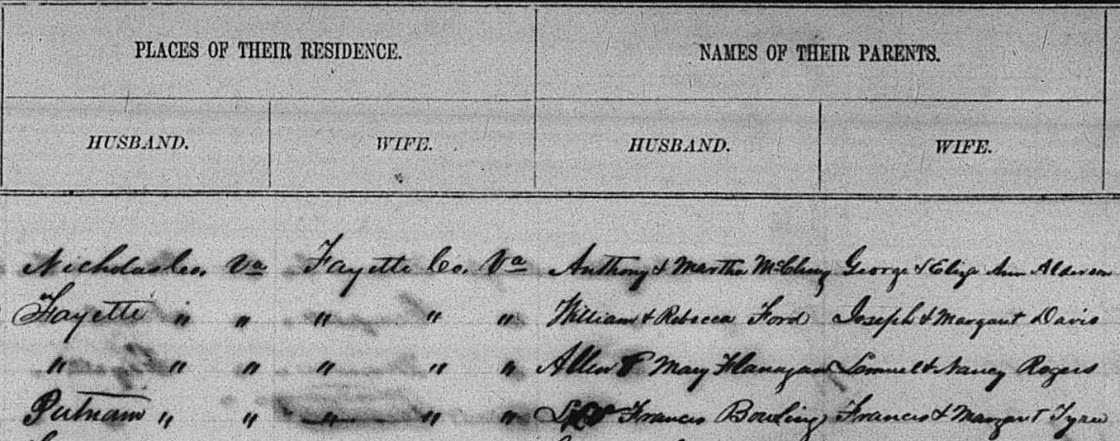 PLACES OF THEIR RESIDENCE. NAMES OF THEIR PARENTS.
HUSBAND. WIFE. HUSBAND. WIFE.
Nicholas Co. Va Fayette Co. Va Anthony & Martha McClung George & Eliza Ann Alderson
Fayette " " " " " William & Rebecca Ford Joseph & Margaret Davis
" " " " " " Allen & Mary Flanagan Lemuel & Nancy Rogers
Putnam " " " " " Francis Bowling Francis & Margaret Tyree